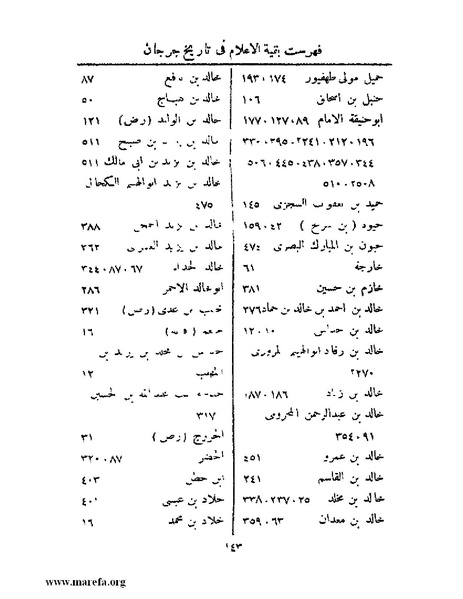 فهرست بقية الاعلام فى تاريخ جرجان
حميل مولى طهفيور ١٧٤، ١٩٣
حنبل بن اسحاق ١٠٦
ابوحنيفة الامام ٨٩، ١٢٧، ١٧٧
١٩٦، ٢١٢، ٢٤١، ٣٩٥، ٣٣٠
٣٤٤، ٣٥٧، ٤٣٨، ٤٤٥، ٥٠٦
٥٠٨، ٥١٠
حميد بن يعقوب السجزى ١٤٥
حيوه (بن سريح) ٤٢، ١٥٩
حيون بن المبارك البصرى ٤٧٤
خارجة ٦١
خازم بن حسين ٣٨١
خالد بن احمد بن خالد بن حماد ٣٧٦
خالد بن ١٠، ١٢
خالد بن رقاد ابوالهيم المروزى
٢٧٠
خالد بن زياد ١٨٦، ٨٧
خالد بن عبدالرحمن المخزومى
٩١، ٣٥٤
خالد بن عمرو ٤٥١
خالد بن القاسم ٢٤١
خالد بن مخلد ٢٥، ٢٣٧، ٣٣٨
خالد بن معدان ٦٣، ٣٥٩
خالد بن نافع ٨٧
خالد بن هياج ٥٠
خالد بن الوليد (رض) ١٢١
خالد بن بن صبيح ٥١١
خالد بن يزيد بن ابى مالك ٥١١
خالد بن يزيد ابوالهيم الكحال
٤٧٥
خالد بن يزيد ٣٨٨
خالد بن يزيد العمرى ٣٦٢
خالد الحذاء ٦٧، ٨٧، ٣٤٤
ابوخالد الاحمر ٢٨٦
بن عدى (رض) ٣٢١
١٦
بن محمد بن يزيد بن
١٢
عبدالله بن الحسين
٣١٧
(رض) ٣١
الخضر ٨٧، ٣٢٠
ابن ٤٠٣
خلاد بن عيسى ٤٠١
خلاد بن محمد ١٦
١٤٣
www.marefa.org